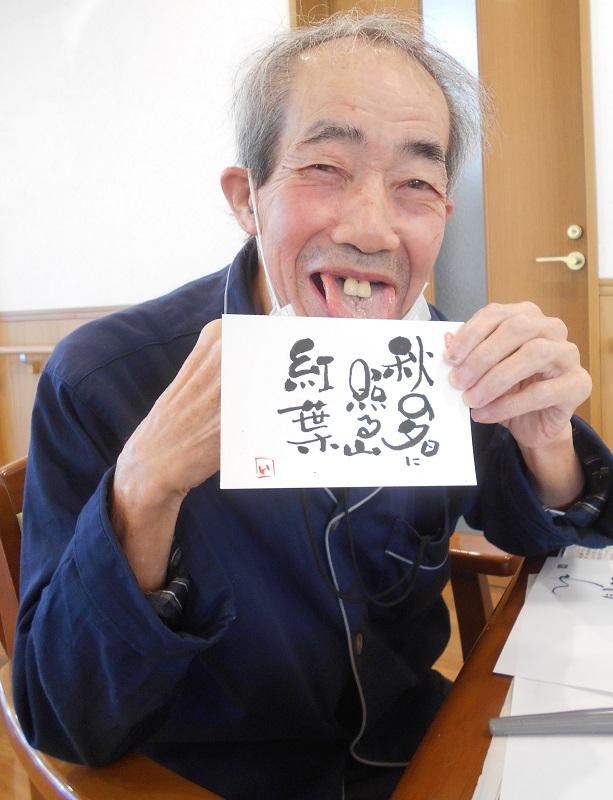 秋の夕日に
照る山
紅葉
い